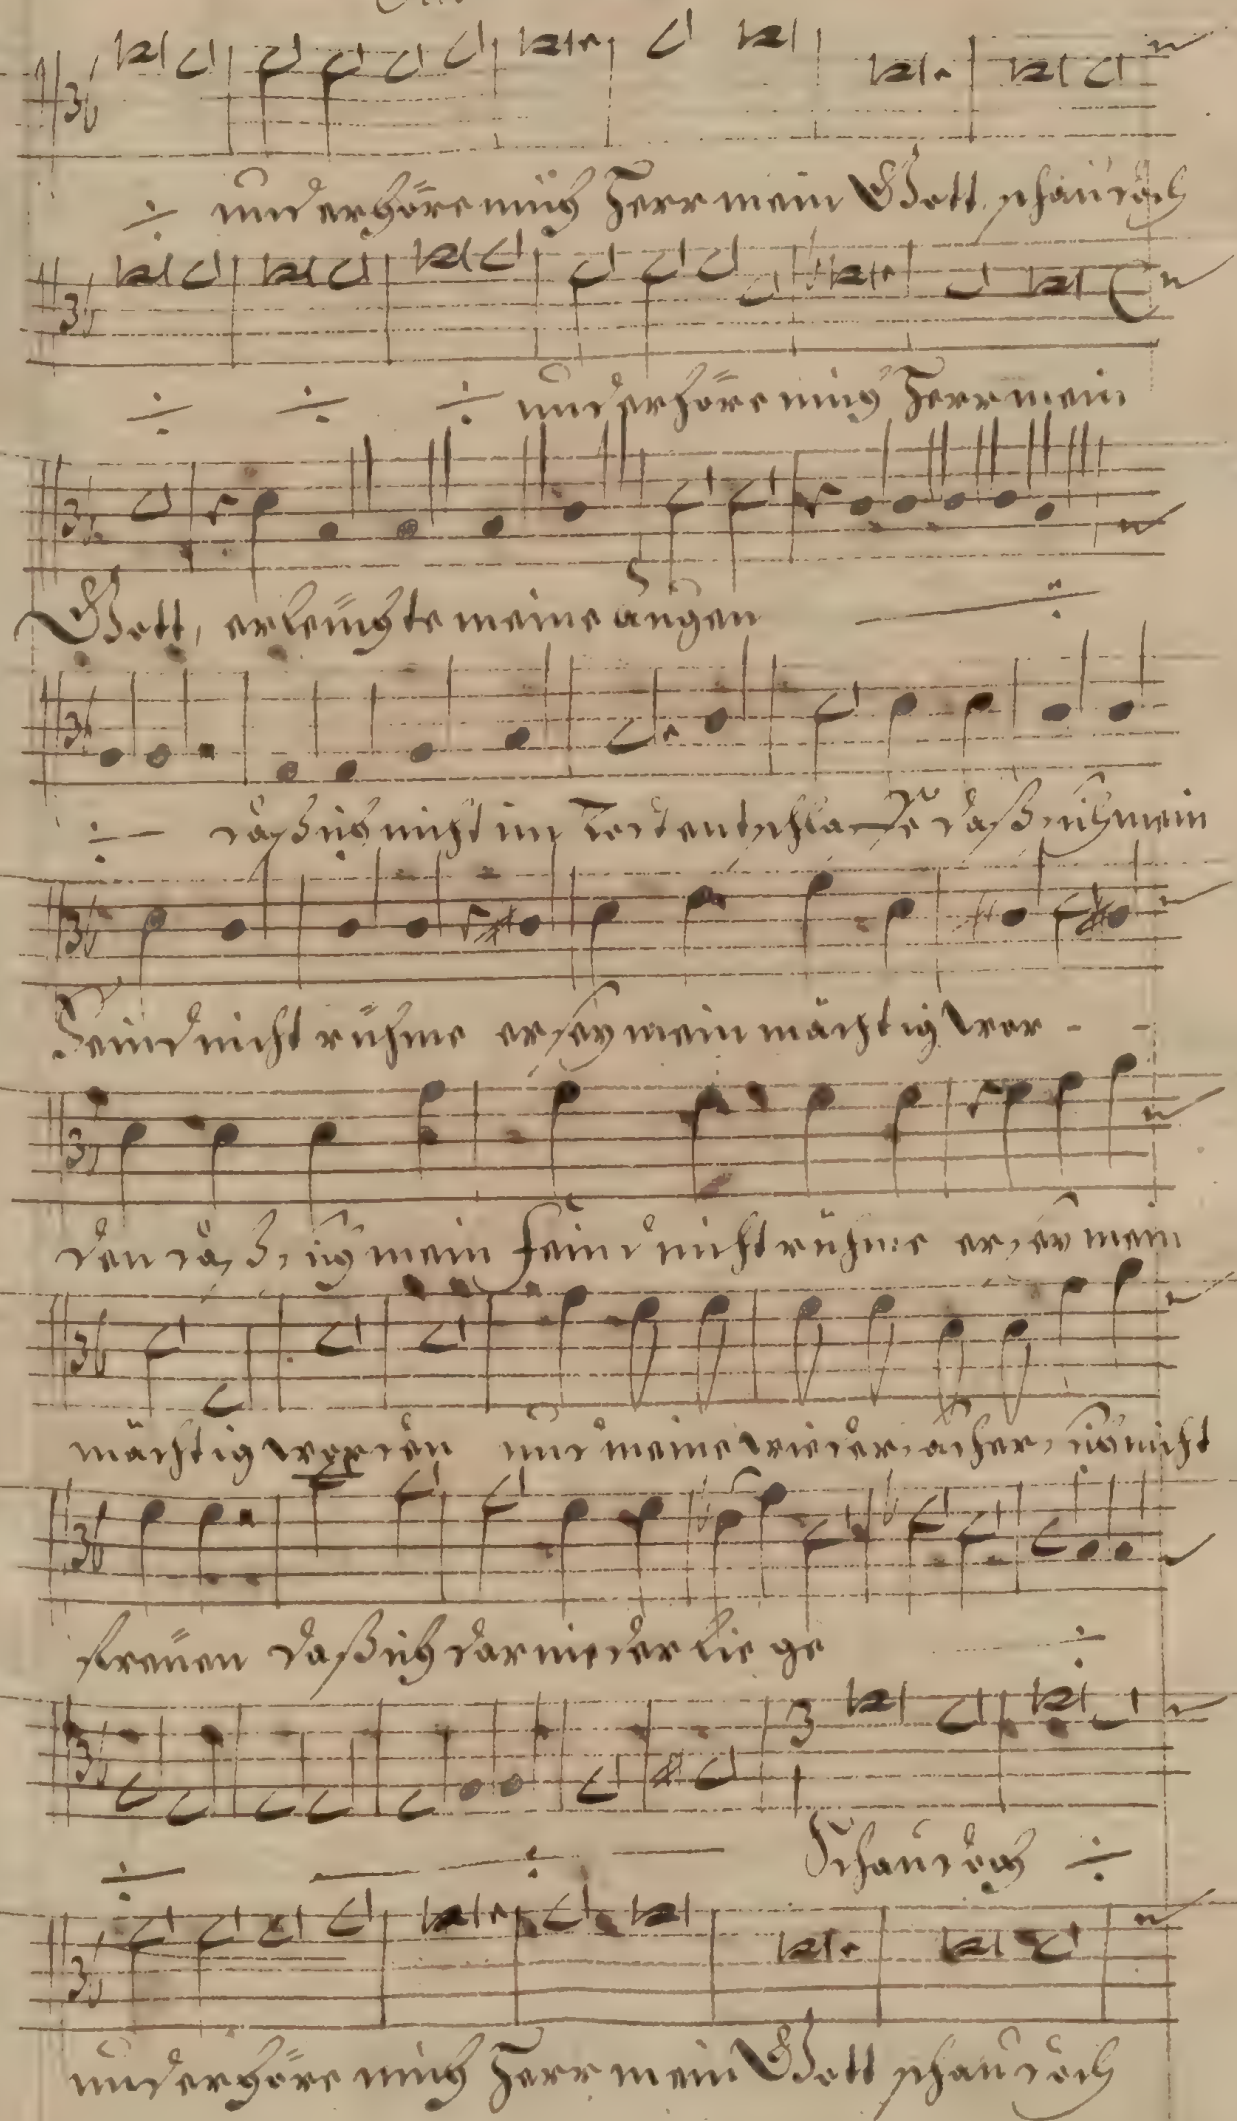 ÷ und erhöre mich Herr mein Gott, schau doch
÷ ÷ ÷ und erhöre mich Herr mein
Gott, erleuchte meine augen ÷
÷ daß ich nicht im Todt entschlaffe daß sich mein
Feind nicht rühme er sey mein mächtig wor - -
den daß sich mein Feind nicht rühme er sey mein
mächtig worden und meine wiedersacher sich nicht
freuen daß ich darnieder liege ÷
÷ ÷ Schau doch ÷
und erhöre mich Herr mein Gott schau doch